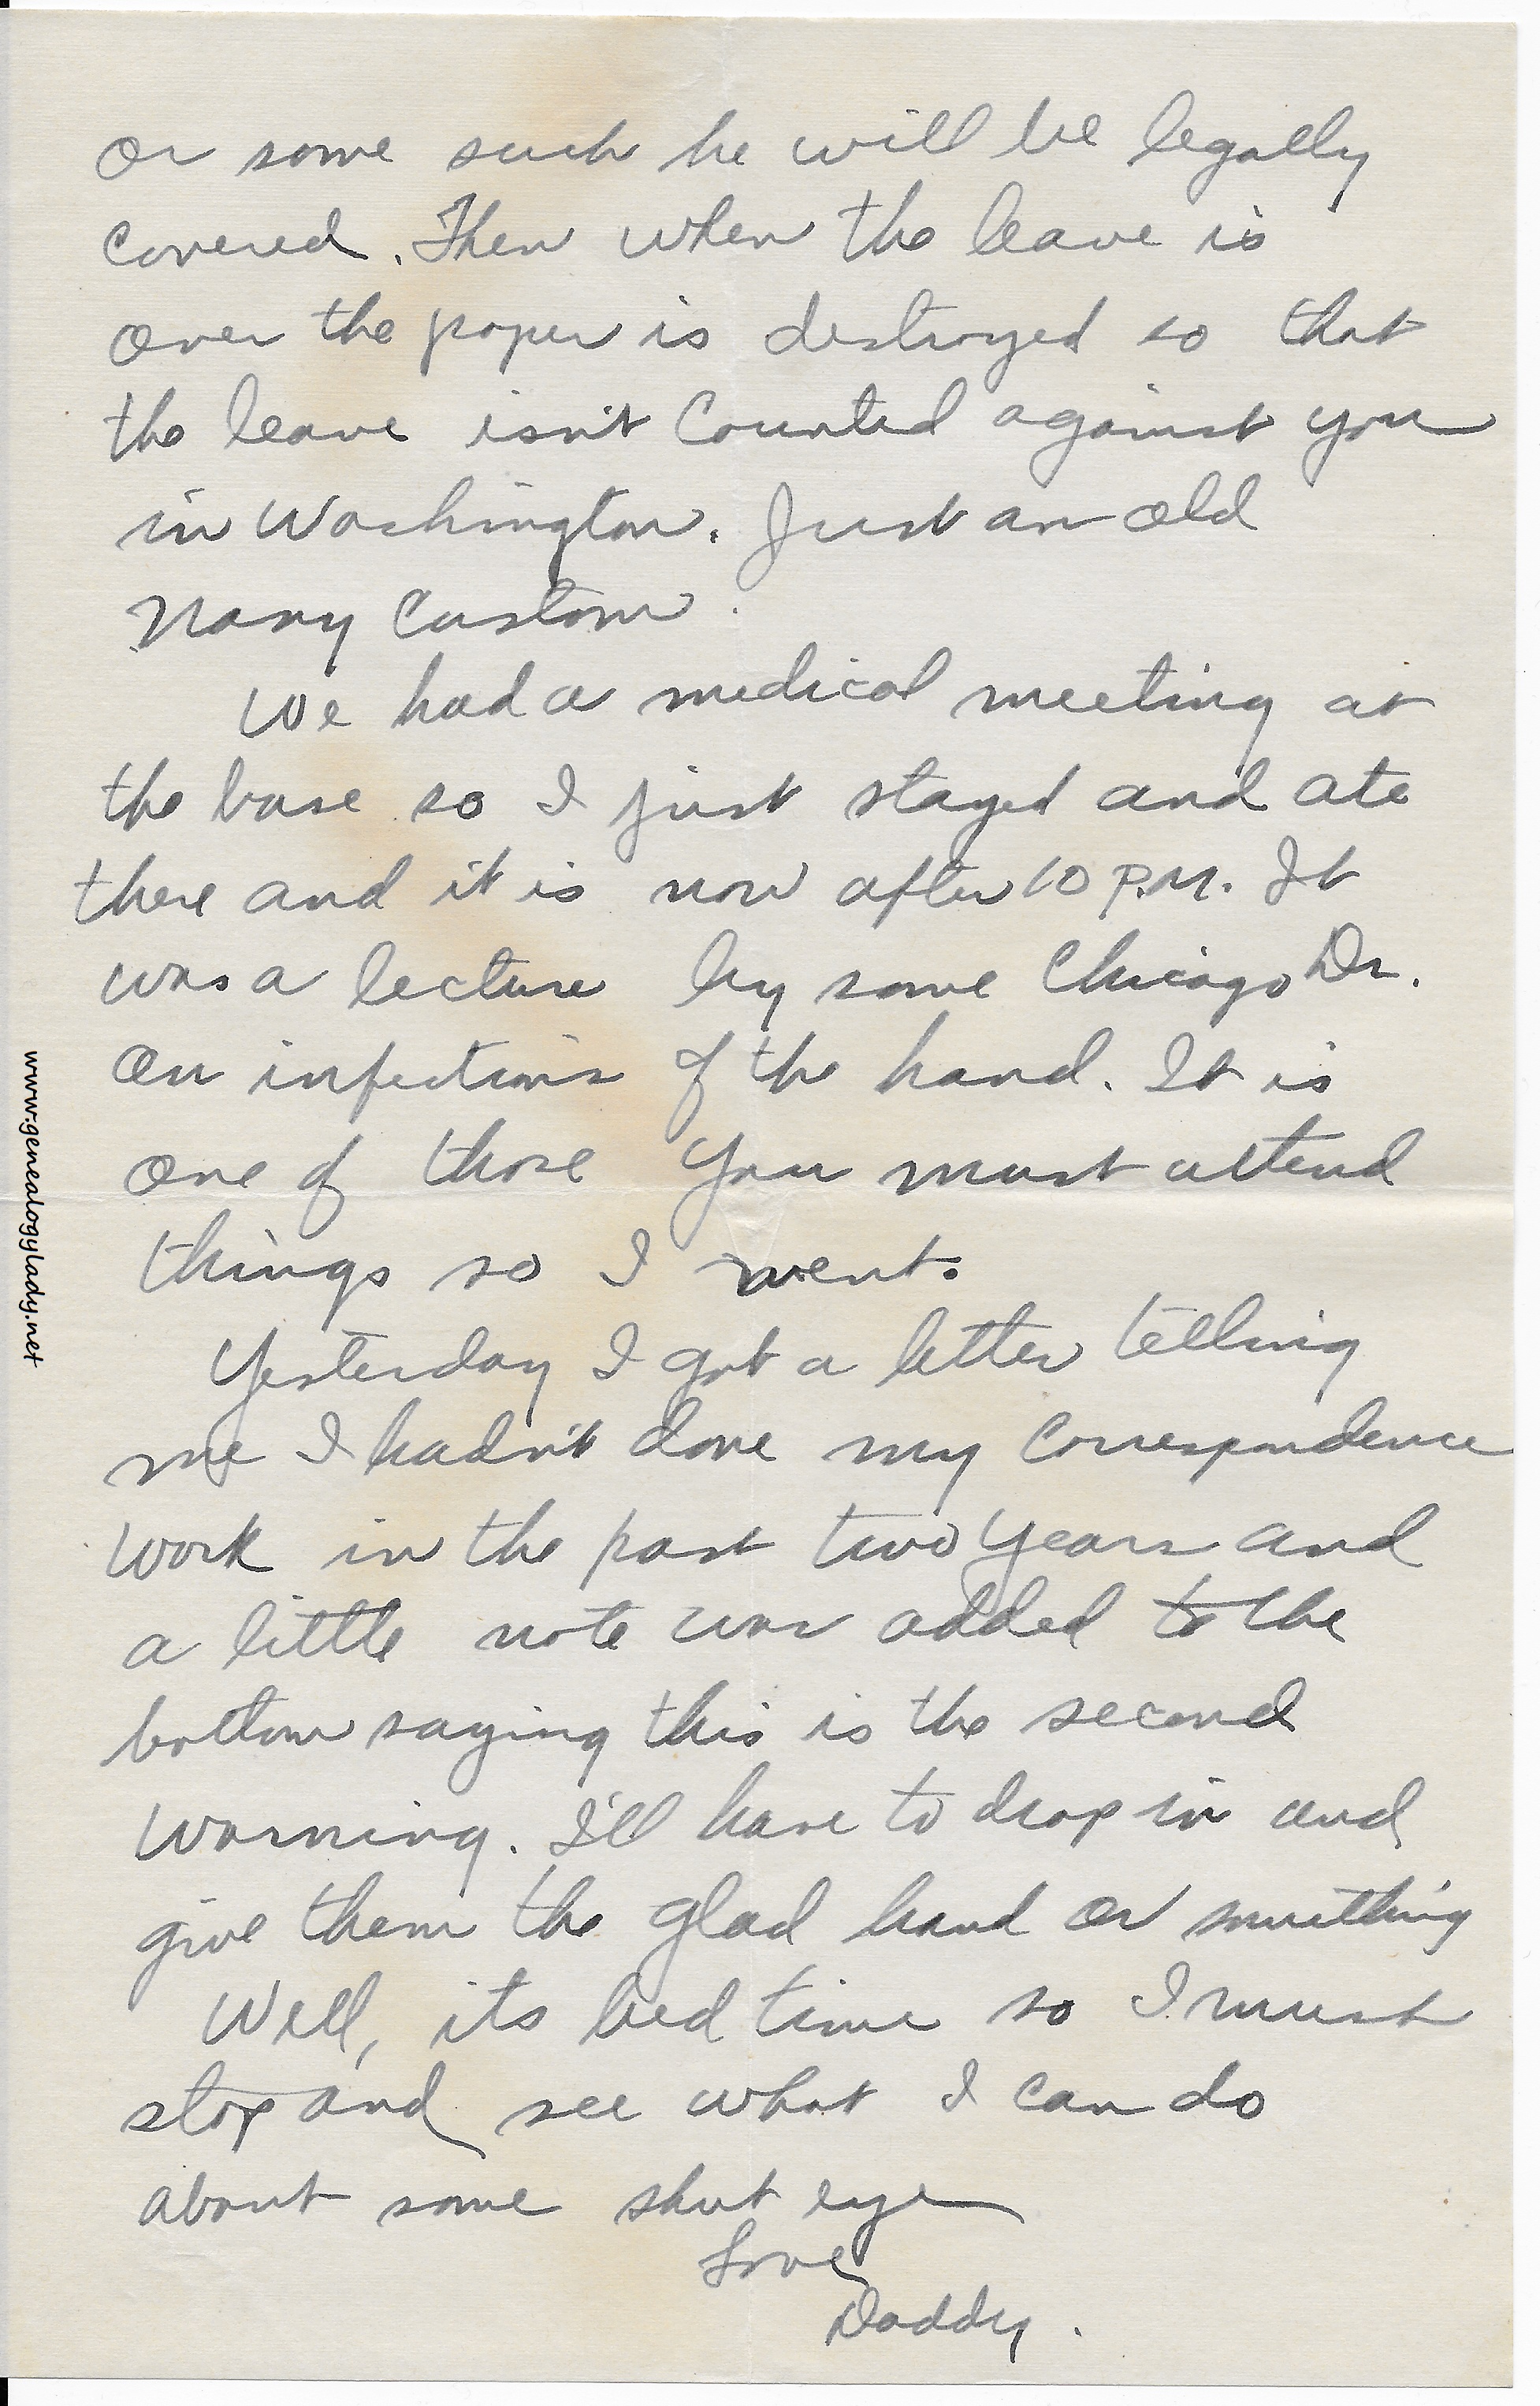 or some such he will be legally
covered. Then when the leave is
over the paper is destroyed so that
the leave isn't counted against you
in Washington. Just an old
Navy Custom.
We had a medical meeting at
the base so I just stayed and ate
there and it is now after 10 P.M. It
was a lecture by some Chicago Dr.
on infections of the hand. It is
one of those you must attend
things so I went.
Yesterday I got a letter telling
me I hadn't done my correspondence
work in the past two years and
a little note was added to the
bottom saying this is the second
warning. I'll have to drop in and
give them the glad hand or something
Well, its bed time so I must
stop and see what I can do
about some shut eye
Love
Daddy.
www.genealogylady.net